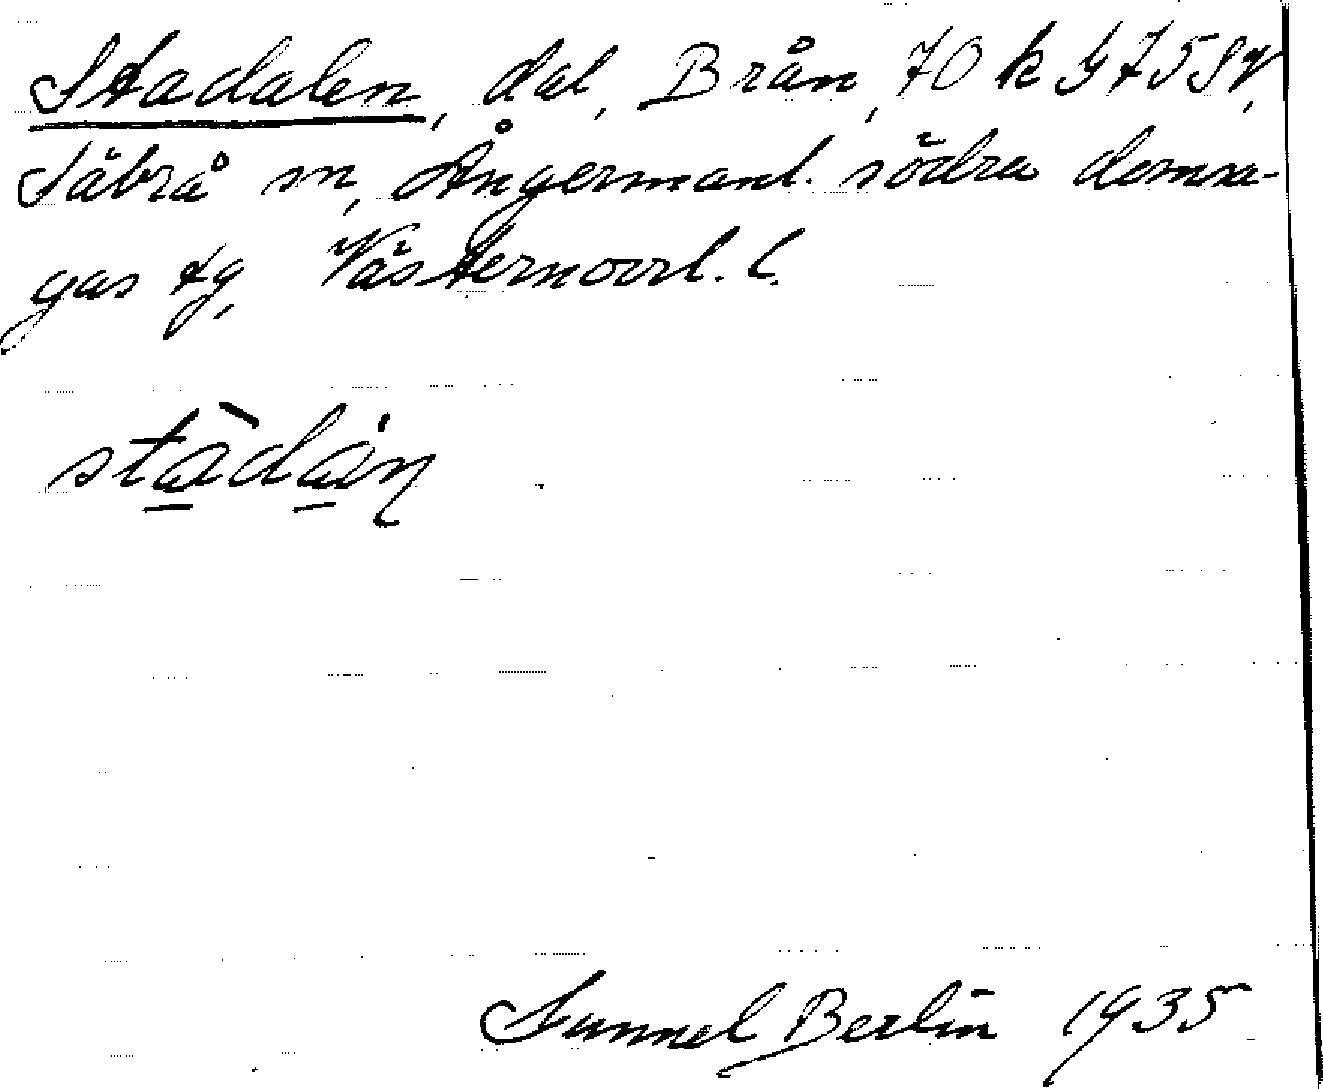 Stadalen, dal, Brån, 70 k G 75 SV,
Säbrå sn, Ångermanl. södra domsa-
gas tg, Västernorrl. l.
stàdáṇ
Sunnel Berlin 1935